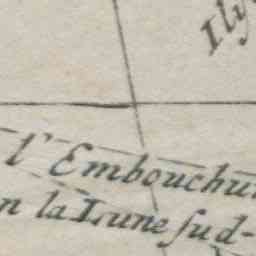 Ily
l'Embouchu
n la Lune ſud-